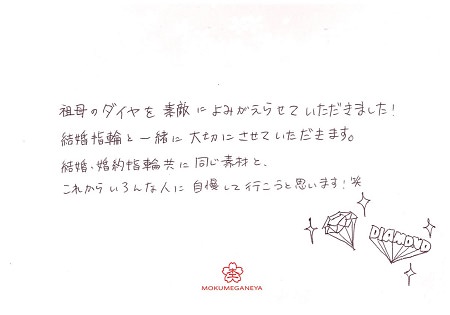 祖母のダイヤを素敵によみがえらせていただきました!
結婚指輪と一緒に大切にさせていただきます。
結婚・婚約指輪共に同じ素材と、
これからいろんな人に自慢して行こうと思います!笑
DIAMOND
杢
MOKUMEGANEYA